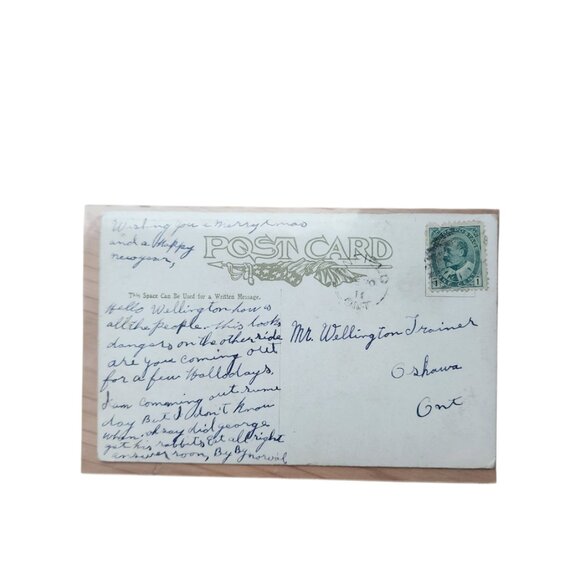 Wishing you a merry xmas
and a Happy
newyear,
POST CARD
This Space Can Be Used for a Written Message.
Hello Wellington how is
all the people. this looks
dangers on the other side
are you coming out
for a few Holladays.
I am comming out sume
day But I don't know
when, oh say did george
get his rabbits Eat all right
answer soon, By By norval
Mr. Wellington Trainer
Oshawa
Ont
1 1